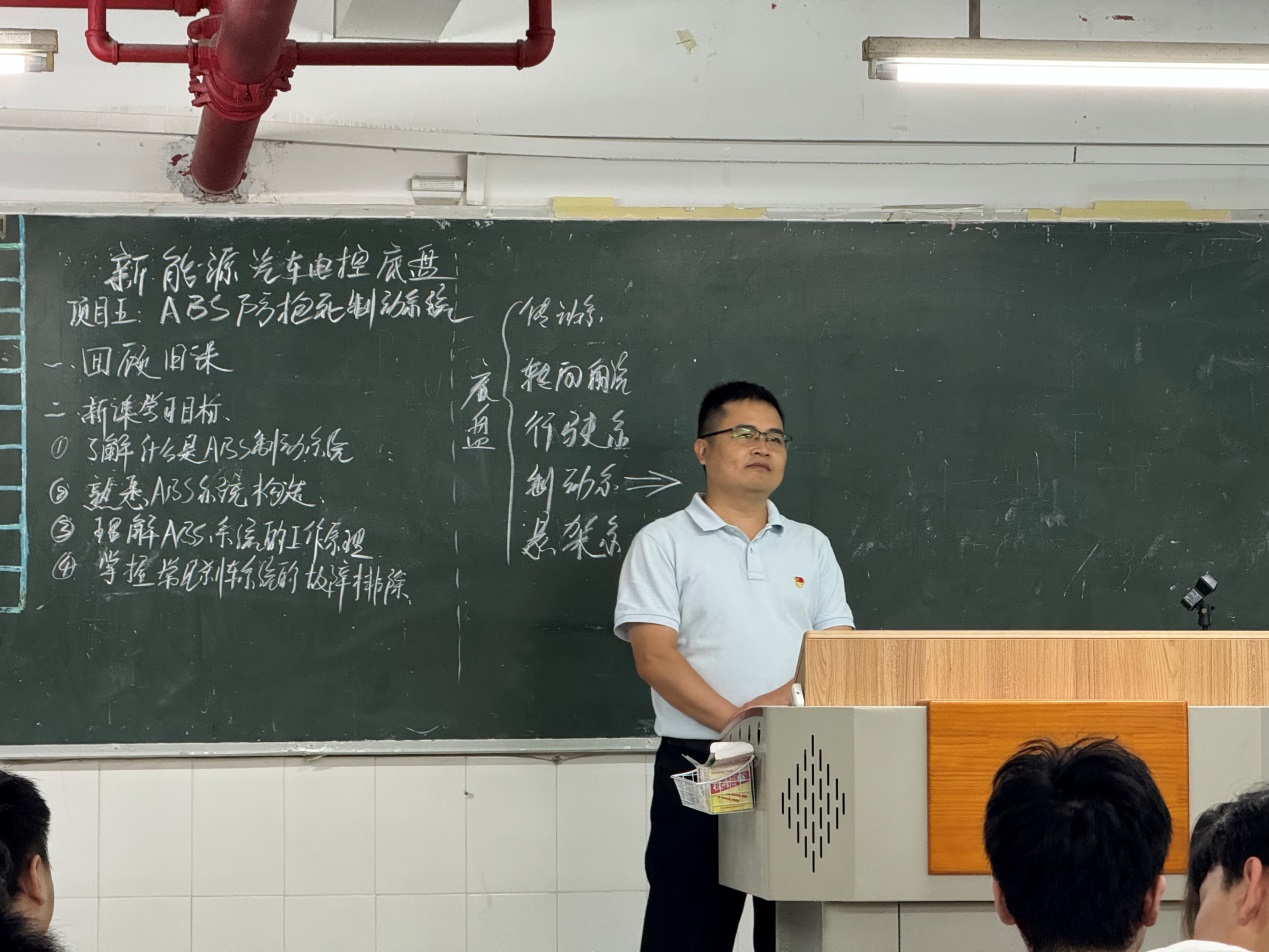 新能源汽车电控底盘
项目五：ABS防抱死制动系统
一、回顾旧课
二、新课学习目标
① 了解什么是ABS制动系统
② 熟悉ABS系统构造
③ 理解ABS系统的工作原理
④ 学握常见刹车系统的故障排除
底盘
传动系
转向系统
行驶系
制动系
悬架系